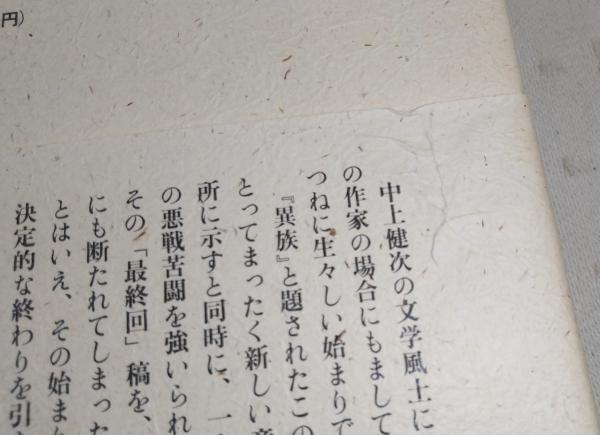 円）
中上健次の文学風土に
の作家の場合にもまして
つねに生々しい始まりで
『異族』と題されたこの
とってまったく新しい
所に示すと同時に、一
の悪戦苦闘を強いられ
その「最終回」稿を、
にも断たれてしまった
とはいえ、その始まり
決定的な終わりを引